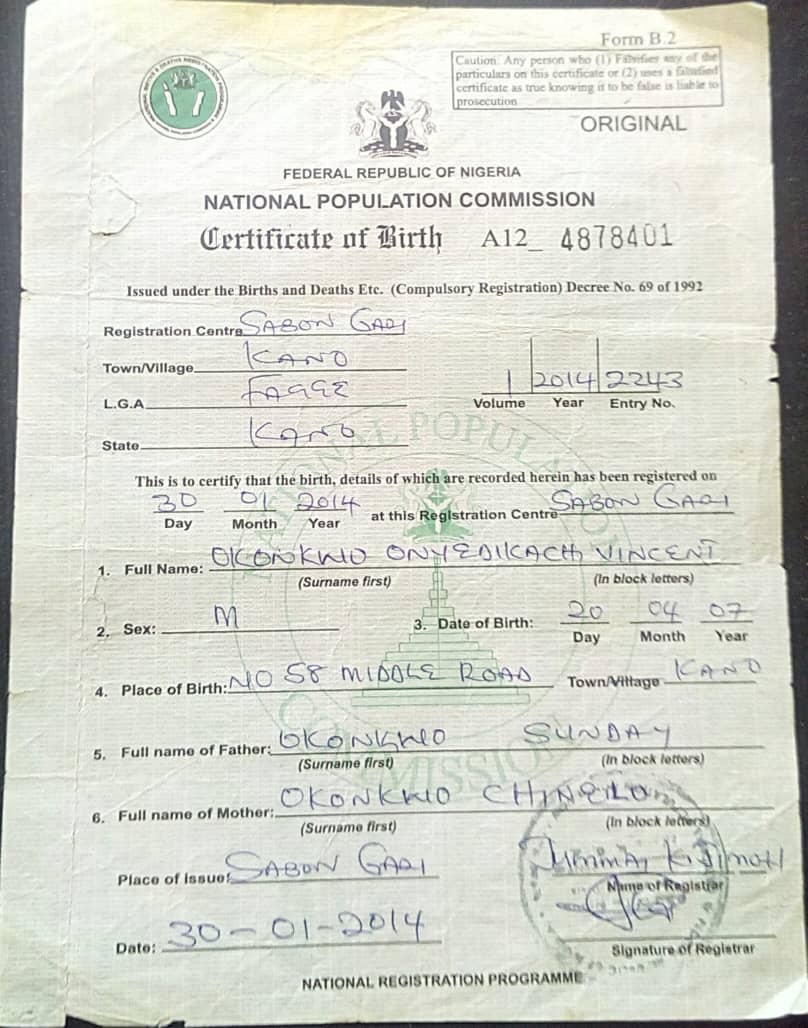 Form B.2
Caution: Any person who (1) Falsifies any of the
particulars on this certificate or (2) uses a falsified
certificate as true knowing it to be false is liable to
prosecution
ORIGINAL
FEDERAL REPUBLIC OF NIGERIA
NATIONAL POPULATION COMMISSION
Certificate of Birth A12_ 4878401
Issued under the Births and Deaths Etc. (Compulsory Registration) Decree No. 69 of 1992
Registration Centre SABON GARI
Town/Village KANO
L.G.A FAGGE
1 2014 2243
Volume Year Entry No.
State KANO
This is to certify that the birth, details of which are recorded herein has been registered on
30 01 2014 at this Registration Centre SABON GARI
Day Month Year
1. Full Name: OKONKWO ONYEDIKACHI VINCENT
(Surname first) (In block letters)
2. Sex: M 3. Date of Birth: 20 04 07
Day Month Year
4. Place of Birth: NO 58 MIDDLE ROAD Town/Village KANO
5. Full name of Father: OKONKWO SUNDAY
(Surname first) (In block letters)
6. Full name of Mother: OKONKWO CHINELO
(Surname first) (In block letters)
Place of Issue: SABON GARI
Name of Registrar
Date: 30-01-2014
Signature of Registrar
NATIONAL REGISTRATION PROGRAMME
NATIONAL POPULATION COMMISSION